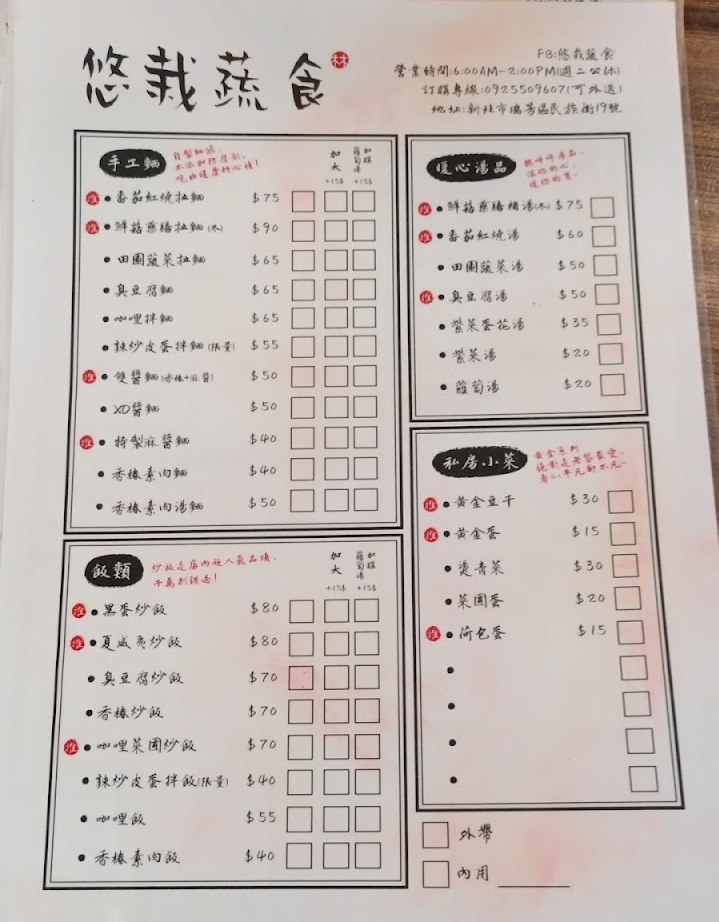 悠哉蔬食 林
FB:悠哉蔬食
營業時間:6:00AM-2:00PM(週二公休)
訂購專線:0925509607(可外送)
地址:新北市瑞芳區民族街19號
手工麵
自製麵條,
不添加防腐劑,
吃的健康好心情!
加大 +15$
加購蘿蔔湯 +15$
推 • 番茄紅燒拉麵 $75
推 • 鮮菇藥膳拉麵(冬) $90
• 田園蔬菜拉麵 $65
• 臭豆腐麵 $65
• 咖哩拌麵 $65
• 辣炒皮蛋拌麵(限量) $55
推 • 雙醬麵(香椿+麻醬) $50
• XO醬麵 $50
推 • 特製麻醬麵 $40
• 香椿素肉麵 $40
• 香椿素肉湯麵 $50
飯類
炒飯是店內超人氣品項,
千萬別錯過!
加大 +15$
加購蘿蔔湯 +15$
推 • 黑蛋炒飯 $80
推 • 夏威夷炒飯 $80
• 臭豆腐炒飯 $70
• 香椿炒飯 $70
推 • 咖哩菜圃炒飯 $70
• 辣炒皮蛋拌飯(限量) $40
• 咖哩飯 $55
• 香椿素肉飯 $40
暖心湯品
熱呼呼湯品,
溫你的心,
暖你的胃~
推 • 鮮菇藥膳補湯(冬) $75
推 • 番茄紅燒湯 $60
• 田園蔬菜湯 $50
推 • 臭豆腐湯 $50
• 紫菜蛋花湯 $35
• 紫菜湯 $20
• 蘿蔔湯 $20
私房小菜
黃金系列
絕對是老饕最愛,
看似平凡卻不凡~
推 • 黃金豆干 $30
推 • 黃金蛋 $15
• 燙青菜 $30
• 菜圃蛋 $20
推 • 荷包蛋 $15
•
•
•
•
外帶
內用